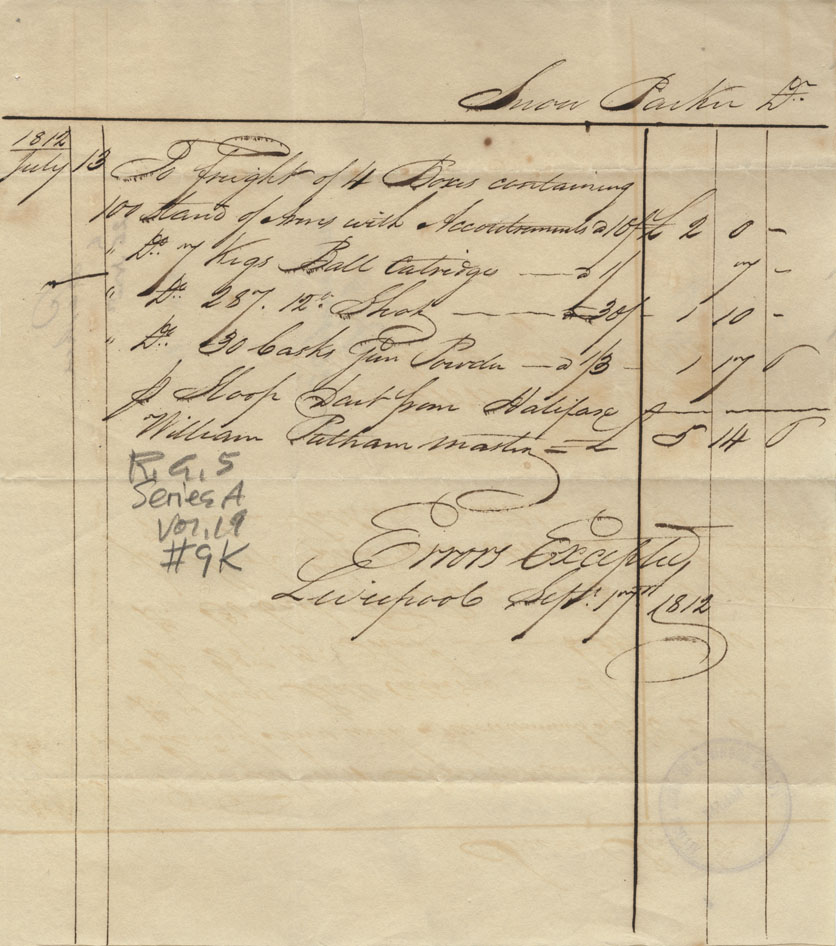 Snow Parker Dr.
1812
July 13 To freight of 4 Boxes containing
100 Stand of Arms with Accoutrements a 10/ £ 2 0 -
" Do 7 Kegs Ball Catridge — a 1/ 7 -
" Do 287. 12lb Shot — — — a 30/ - 1 10 -
" Do 30 Casks Gun Powder — a 1/3 - 1 17 6
P Sloop Dart from Halifax
William Patham master = £ 5 14 6
R.G.5
Series A
Vol.19
#9K
Errors Excepted
Liverpool Sept. 17th 1812